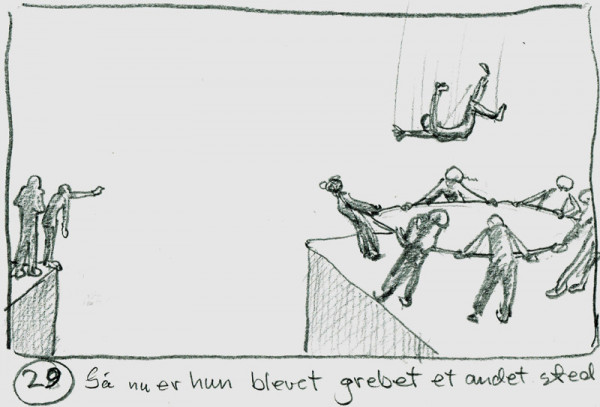 29 Så nu er hun blevet grebet et andet sted